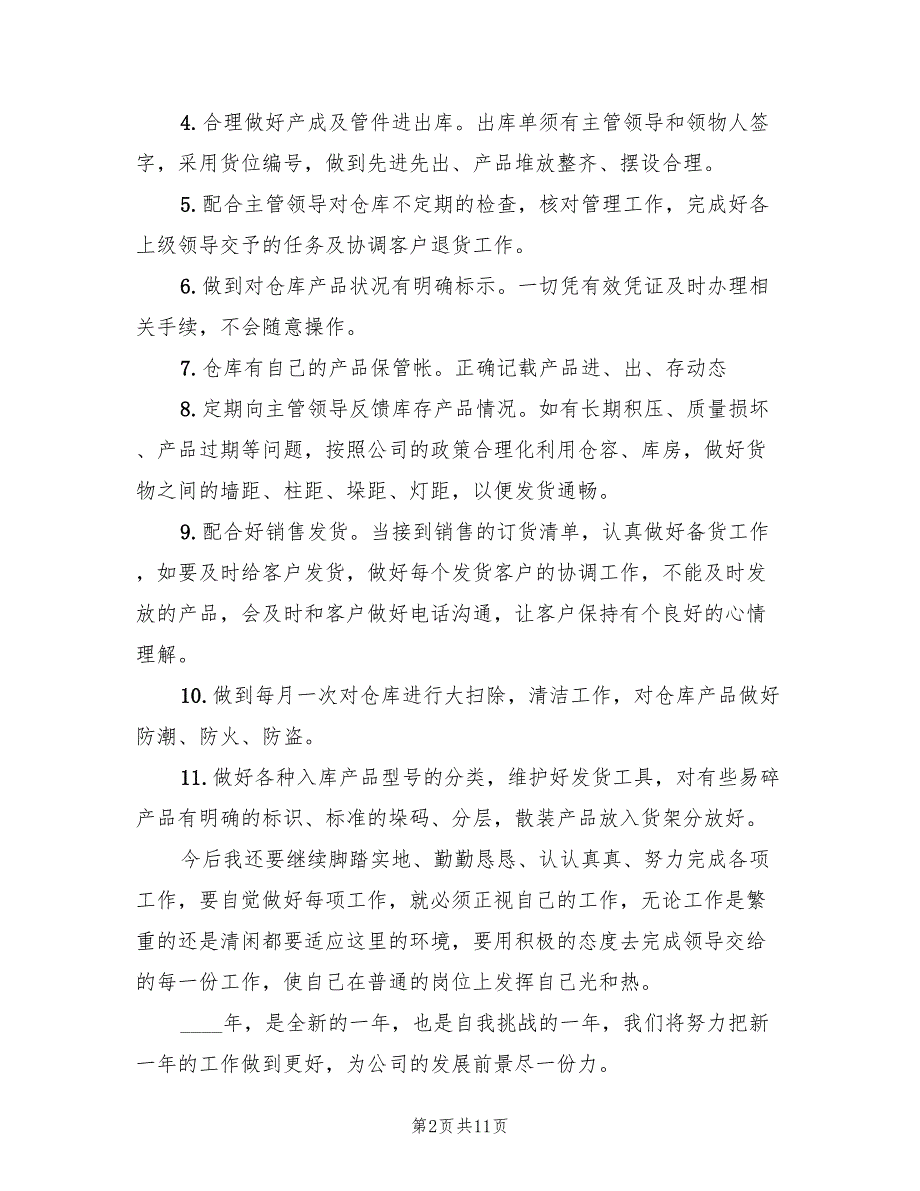 4. 合理做好产成及管件进出库。出库单须有主管领导和领物人签
字，采用货位编号，做到先进先出、产品堆放整齐、摆设合理。
5. 配合主管领导对仓库不定期的检查，核对管理工作，完成好各
上级领导交予的任务及协调客户退货工作。
6. 做到对仓库产品状况有明确标示。一切凭有效凭证及时办理相
关手续，不会随意操作。
7. 仓库有自己的产品保管帐。正确记载产品进、出、存动态
8. 定期向主管领导反馈库存产品情况。如有长期积压、质量损坏
、产品过期等问题，按照公司的政策合理化利用仓容、库房，做好货
物之间的墙距、柱距、垛距、灯距，以便发货通畅。
9. 配合好销售发货。当接到销售的订货清单，认真做好备货工作
，如要及时给客户发货，做好每个发货客户的协调工作，不能及时发
放的产品，会及时和客户做好电话沟通，让客户保持有个良好的心情
理解。
10. 做到每月一次对仓库进行大扫除，清洁工作，对仓库产品做好
防潮、防火、防盗。
11. 做好各种入库产品型号的分类，维护好发货工具，对有些易碎
产品有明确的标识、标准的垛码、分层，散装产品放入货架分放好。
今后我还要继续脚踏实地、勤勤恳恳、认认真真、努力完成各项
工作，要自觉做好每项工作，就必须正视自己的工作，无论工作是繁
重的还是清闲都要适应这里的环境，要用积极的态度去完成领导交给
的每一份工作，使自己在普通的岗位上发挥自己光和热。
____年，是全新的一年，也是自我挑战的一年，我们将努力把新
一年的工作做到更好，为公司的发展前景尽一份力。
第2页共11页